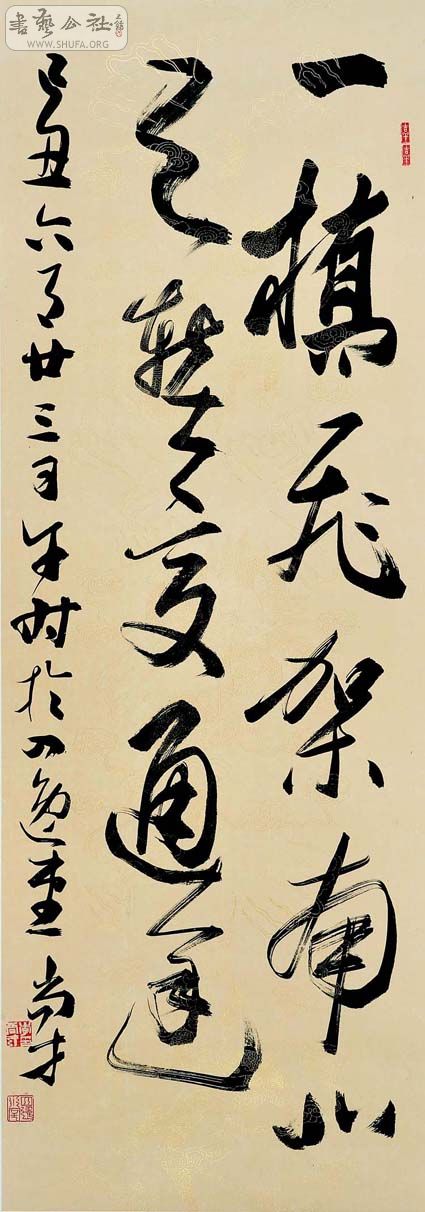 書藝公社
WWW.SHUFA.ORG
一橋飞架南北
天塹变通途
己丑六月廿三日午时於逸堂 尚才